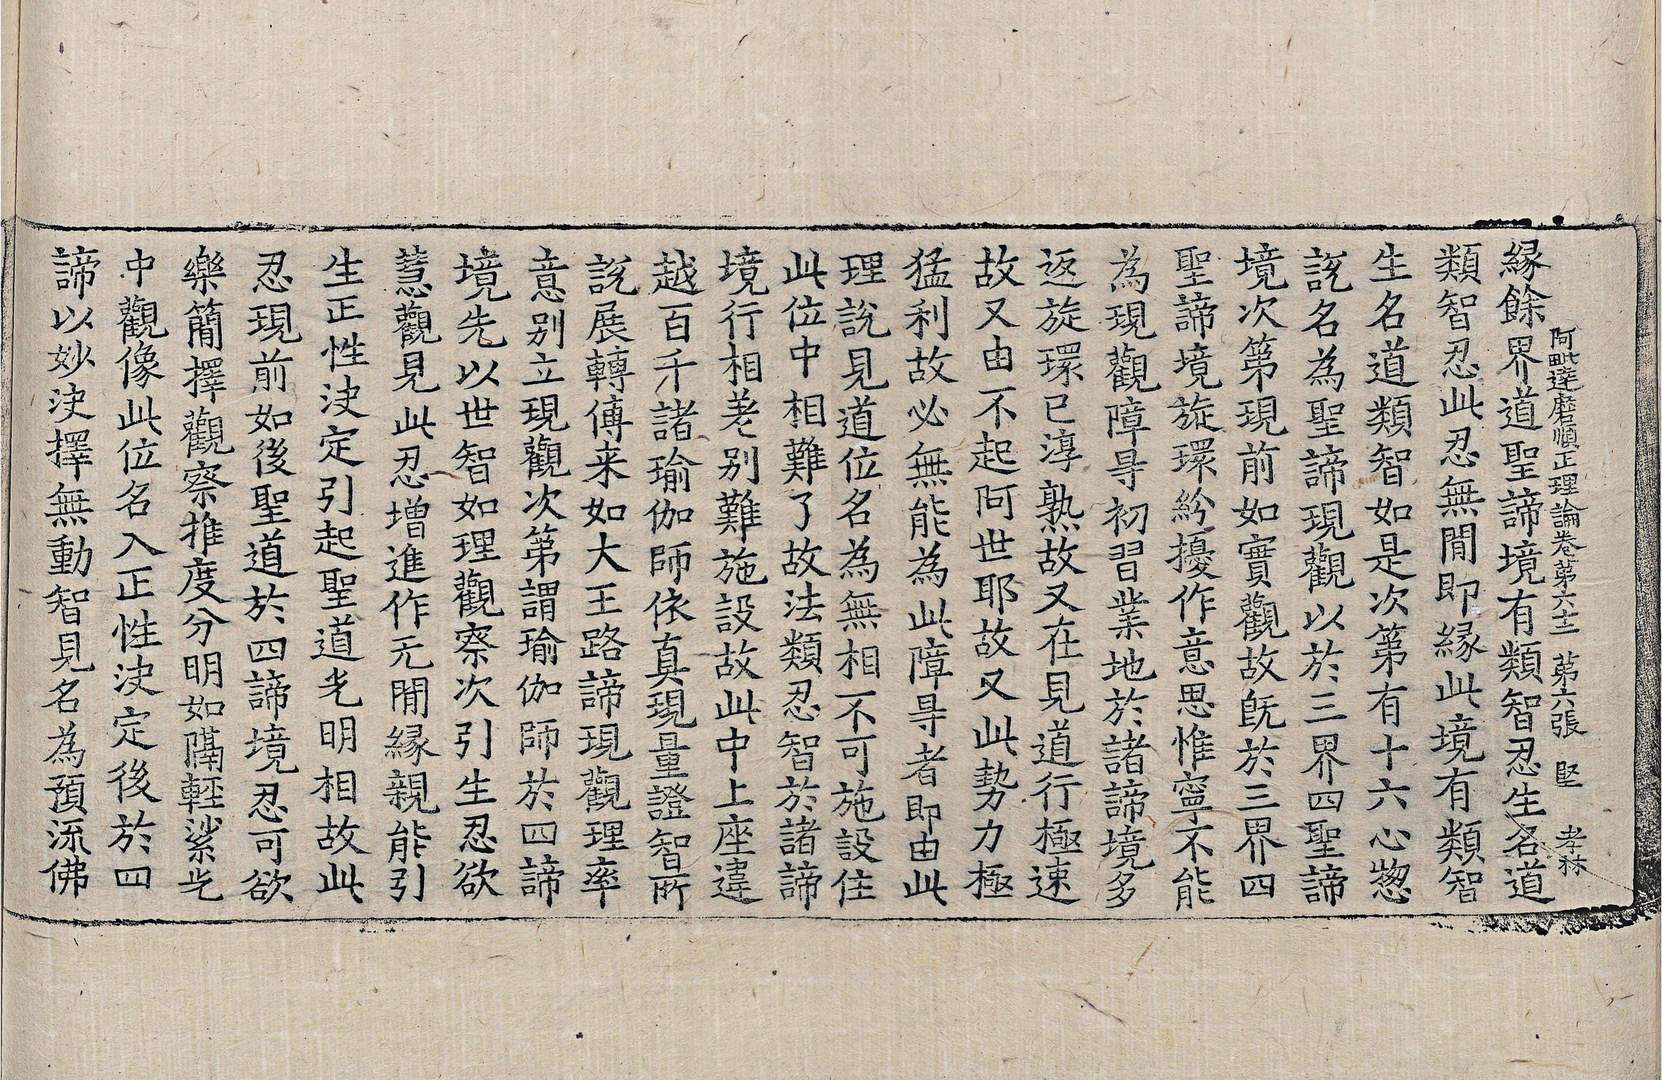 阿毗達磨順正理論卷第六十二　第六張　堅　孝林
緣餘界道聖諦境有類智忍生名道
類智忍此忍無閒即緣此境有類智
生名道類智如是次第有十六心惣
說名為聖諦現觀以於三界四聖諦
境次第現前如實觀故旣於三界四
聖諦境旋環紛擾作意思惟寧不能
為現觀障㝵初習業地於諸諦境多
返旋環已淳熟故又在見道行極速
故又由不起阿世耶故又此勢力極
猛利故必無能為此障㝵者即由此
理說見道位名為無相不可施設住
此位中相難了故法類忍智於諸諦
境行相差別難施設故此中上座違
越百千諸瑜伽師依真現量證智所
說展轉傳来如大王路諦現觀理率
意別立現觀次第謂瑜伽師於四諦
境先以世智如理觀察次引生忍欲
慧觀見此忍增進作无閒緣親能引
生正性決定引起聖道光明相故此
忍現前如後聖道於四諦境忍可欲
樂簡擇觀察推度分明如隔輕紗光
中觀像此位名入正性決定後於四
諦以妙決擇無動智見名為預流佛